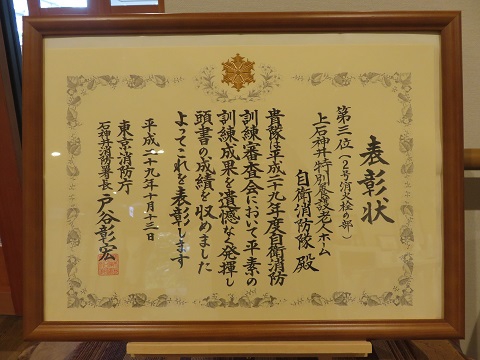 表彰状
第三位(2号消火栓の部)
上石神井特別養護老人ホーム
自衛消防隊殿
貴隊は平成二十九年度自衛消防
訓練審査会において平素の
訓練成果を遺憾なく発揮し
頭書の成績を収めました
よってこれを表彰します
平成二十九年十月十三日
東京消防庁
石神井消防署長 戸谷彰宏